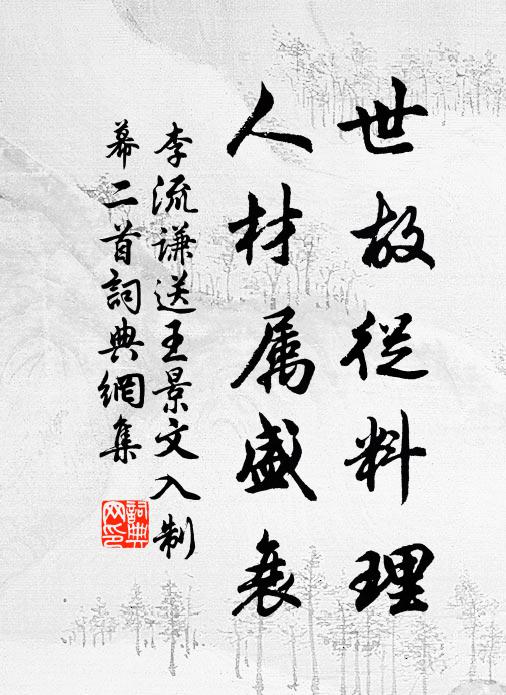 世故從料理
人材属盛衰
李流谦送王景文入制
幕二首詞典網集
詞典
网印